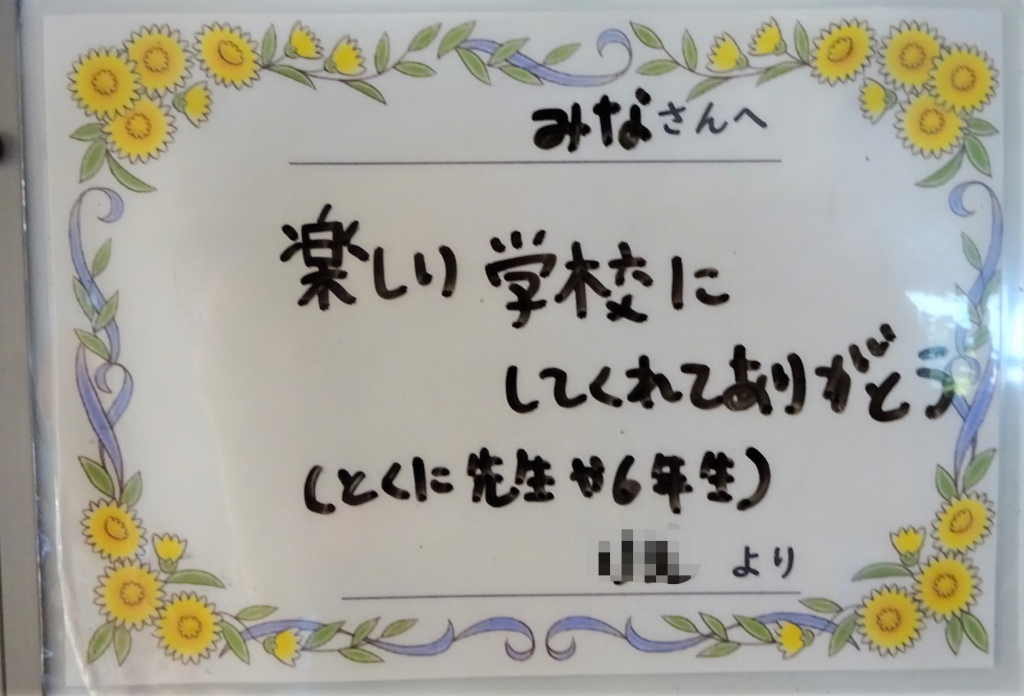 みなさんへ
楽しい学校に
してくれてありがとう
(とくに先生や6年生)
より